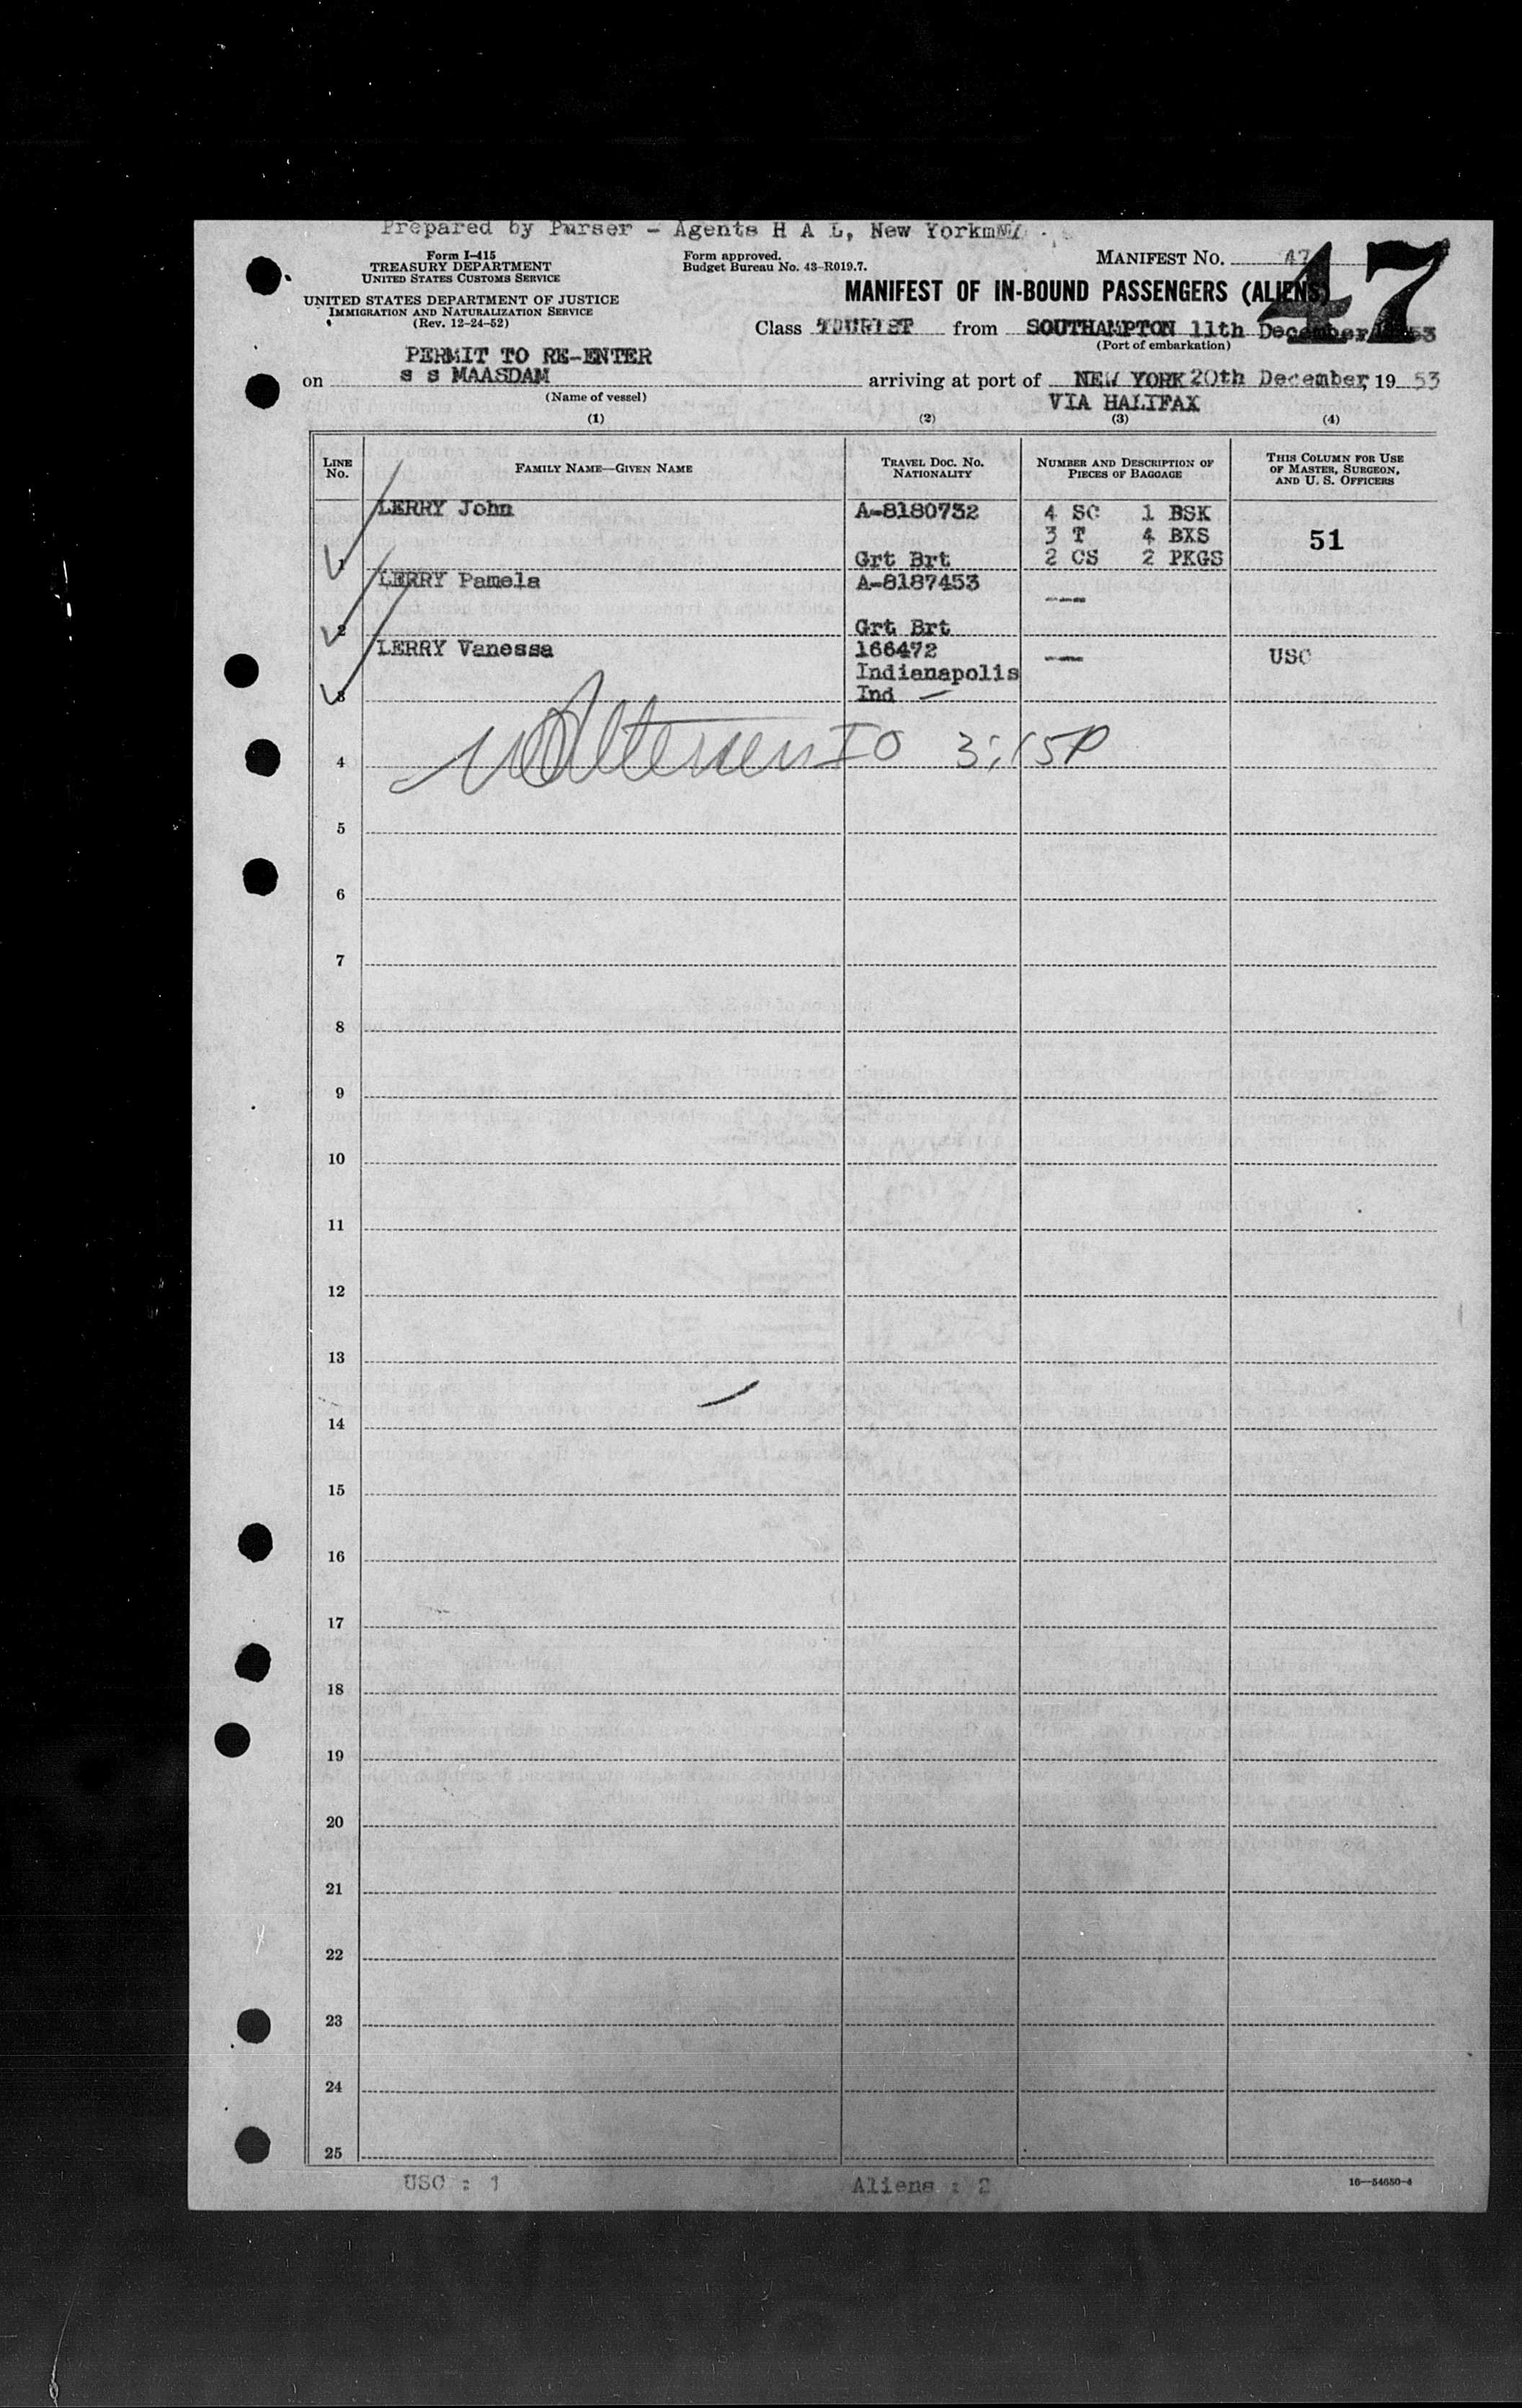 Prepared by Purser - Agents H A L, New York
Form I-415
TREASURY DEPARTMENT
UNITED STATES CUSTOMS SERVICE
UNITED STATES DEPARTMENT OF JUSTICE
IMMIGRATION AND NATURALIZATION SERVICE
(Rev. 12-24-52)
Form approved.
Budget Bureau No. 43-R019.7.
MANIFEST NO. 47
47
MANIFEST OF IN-BOUND PASSENGERS (ALIENS)
Class TOURIST from SOUTHAMPTON 11th December, 1953
(Port of embarkation)
PERMIT TO RE-ENTER
on s s MAASDAM arriving at port of NEW YORK 20th December, 19 53
(Name of vessel)
VIA HALIFAX
(1) (2) (3) (4)
LINE NO. FAMILY NAME—GIVEN NAME TRAVEL DOC. NO. NATIONALITY NUMBER AND DESCRIPTION OF PIECES OF BAGGAGE THIS COLUMN FOR USE OF MASTER, SURGEON, AND U. S. OFFICERS
LERRY John A-8180732 4 SC 1 BSK
3 T 4 BXS 51
1 Grt Brt 2 CS 2 PKGS
LERRY Pamela A-8187453 ---
2 Grt Brt
LERRY Vanessa 166472 --- USC
Indianapolis
3 Ind —
IO 3:15P
4
5
6
7
8
9
10
11
12
13
14
15
16
17
18
19
20
21
22
23
24
25
USC : 1 Aliens : 2 16—54650-4